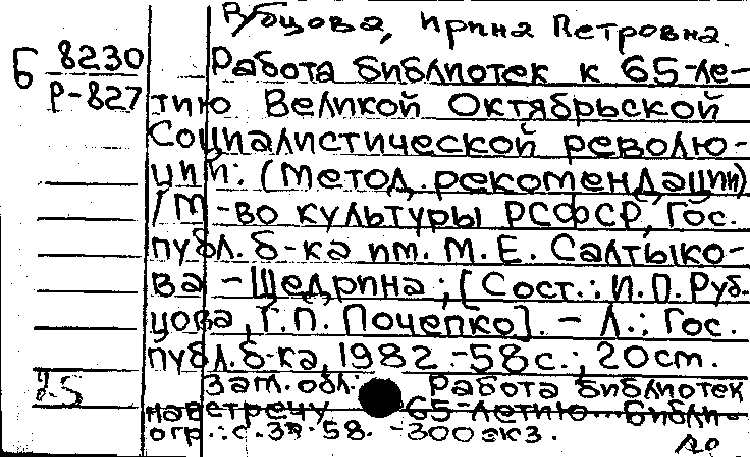 Рубцова, Ирина Петровна.
Б 8230 Работа библиотек к 65-ле-
Р-827 тию Великой Октябрьской
Социалистической револю-
ции: (Метод. рекомендации)
/ М-во культуры РСФСР, Гос.
публ. б-ка им. М. Е. Салтыко-
ва-Щедрина; [Сост.: И. П. Руб-
цова, Г. П. Почепко]. - Л.: Гос.
публ. б-ка, 1982. - 58 с.; 20 см.
Загл. обл.: Работа библиотек
навстречу 65-летию... Библи-
огр.: с. 58. - 300 экз.